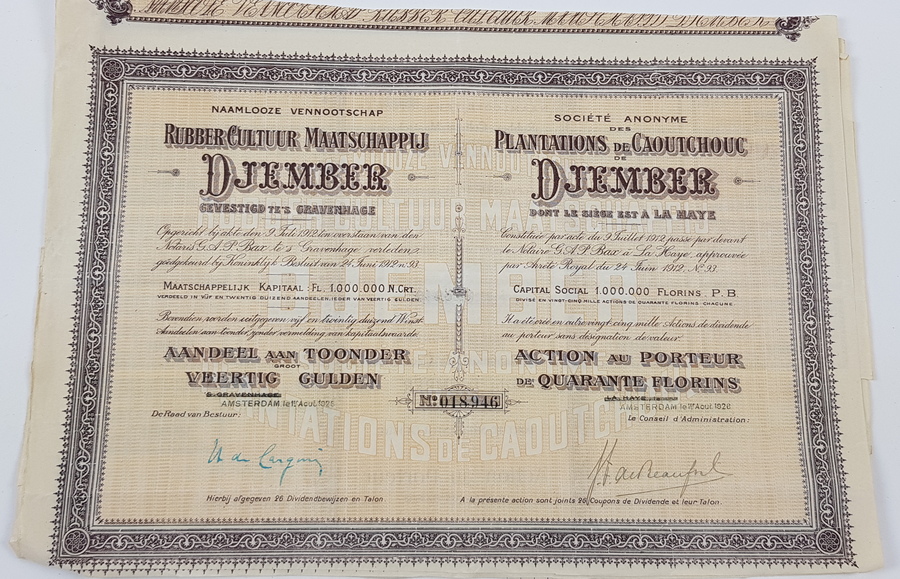 NAAMLOOZE VENNOOTSCHAP
RUBBER CULTUUR MAATSCHAPPIJ
DJEMBER
GEVESTIGD TE 'S GRAVENHAGE
Opgericht bij akte den 9 Juli 1912 ten overstaan van den
Notaris G.A.P. Bax te 's Gravenhage verleden,
goedgekeurd bij Koninklijk Besluit van 24 Juni 1912 nº 93.
MAATSCHAPPELIJK KAPITAAL: FL. 1.000.000 N.CRT.
VERDEELD IN VIJF EN TWENTIG DUIZEND AANDEELEN, IEDER VAN VEERTIG GULDEN.
Bovendien worden uitgegeven vijf en twintig duizend Winst-
Aandeelen aan toonder, zonder vermelding van kapitaalswaarde.
AANDEEL AAN TOONDER
GROOT
VEERTIG GULDEN
'S GRAVENHAGE
AMSTERDAM le 1er Aout 1926
De Raad van Bestuur:
Hierbij afgegeven 26 Dividendbewijzen en Talon
SOCIÉTÉ ANONYME
DES
PLANTATIONS DE CAOUTCHOUC
DE
DJEMBER
DONT LE SIÈGE EST A LA HAYE
Constituée par acte du 9 Juillet 1912 passé par devant
le Notaire G.A.P. Bax à La Haye, approuvée
par Arrêté Royal du 24 Juin 1912, Nº 93.
CAPITAL SOCIAL 1.000.000 FLORINS P.B.
DIVISÉ EN VINGT-CINQ MILLE ACTIONS DE QUARANTE FLORINS CHACUNE
Il a été créé en outre vingt cinq mille Actions de dividende
au porteur sans désignation de valeur.
ACTION AU PORTEUR
DE QUARANTE FLORINS
LA HAYE
AMSTERDAM le 1er Aout 1926
Le Conseil d'Administration:
A la présente action sont joints 26 Coupons de Dividende et leur Talon.
Nº 018946
DJEMBER
PLANTATIONS DE CAOUTCHOUC